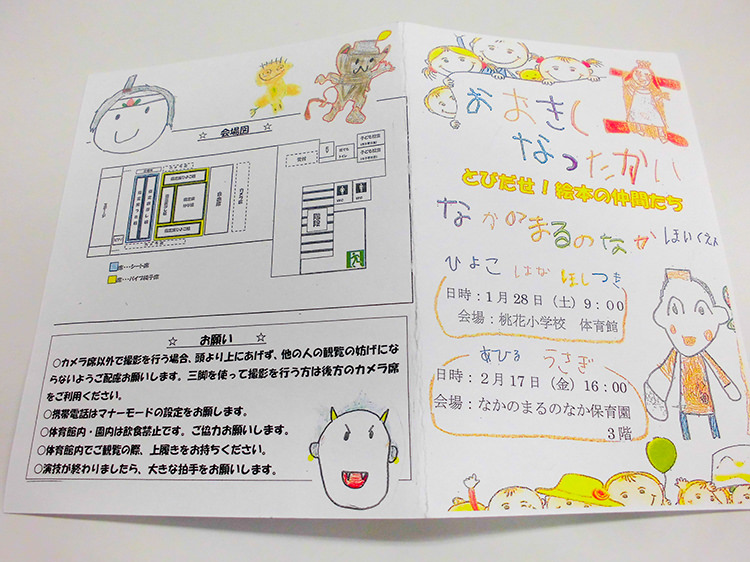 おおきく
なったかい
とびだせ！絵本の仲間たち
なかのまるのなか ほいくえん
ひよこ はな ほし つき
日時：１月２８日（土）９：００
会場：桃花小学校 体育館
あひる うさぎ
日時：２月１７日（金）１６：００
会場：なかのまるのなか保育園
３階
☆ 会場図 ☆
席・・・シート席
席・・・パイプ椅子席
☆ お願い ☆
○カメラ席以外で撮影を行う場合、頭より上にあげず、他の人の観覧の妨げにな
らないようご配慮お願いします。三脚を使って撮影を行う方は後方のカメラ席
をご利用ください。
○携帯電話はマナーモードの設定をお願いします。
○体育館内・園内は飲食禁止です。ご協力お願いします。
○体育館内でご観覧の際、上履きをお持ちください。
○演技が終わりましたら、大きな拍手をお願いします。